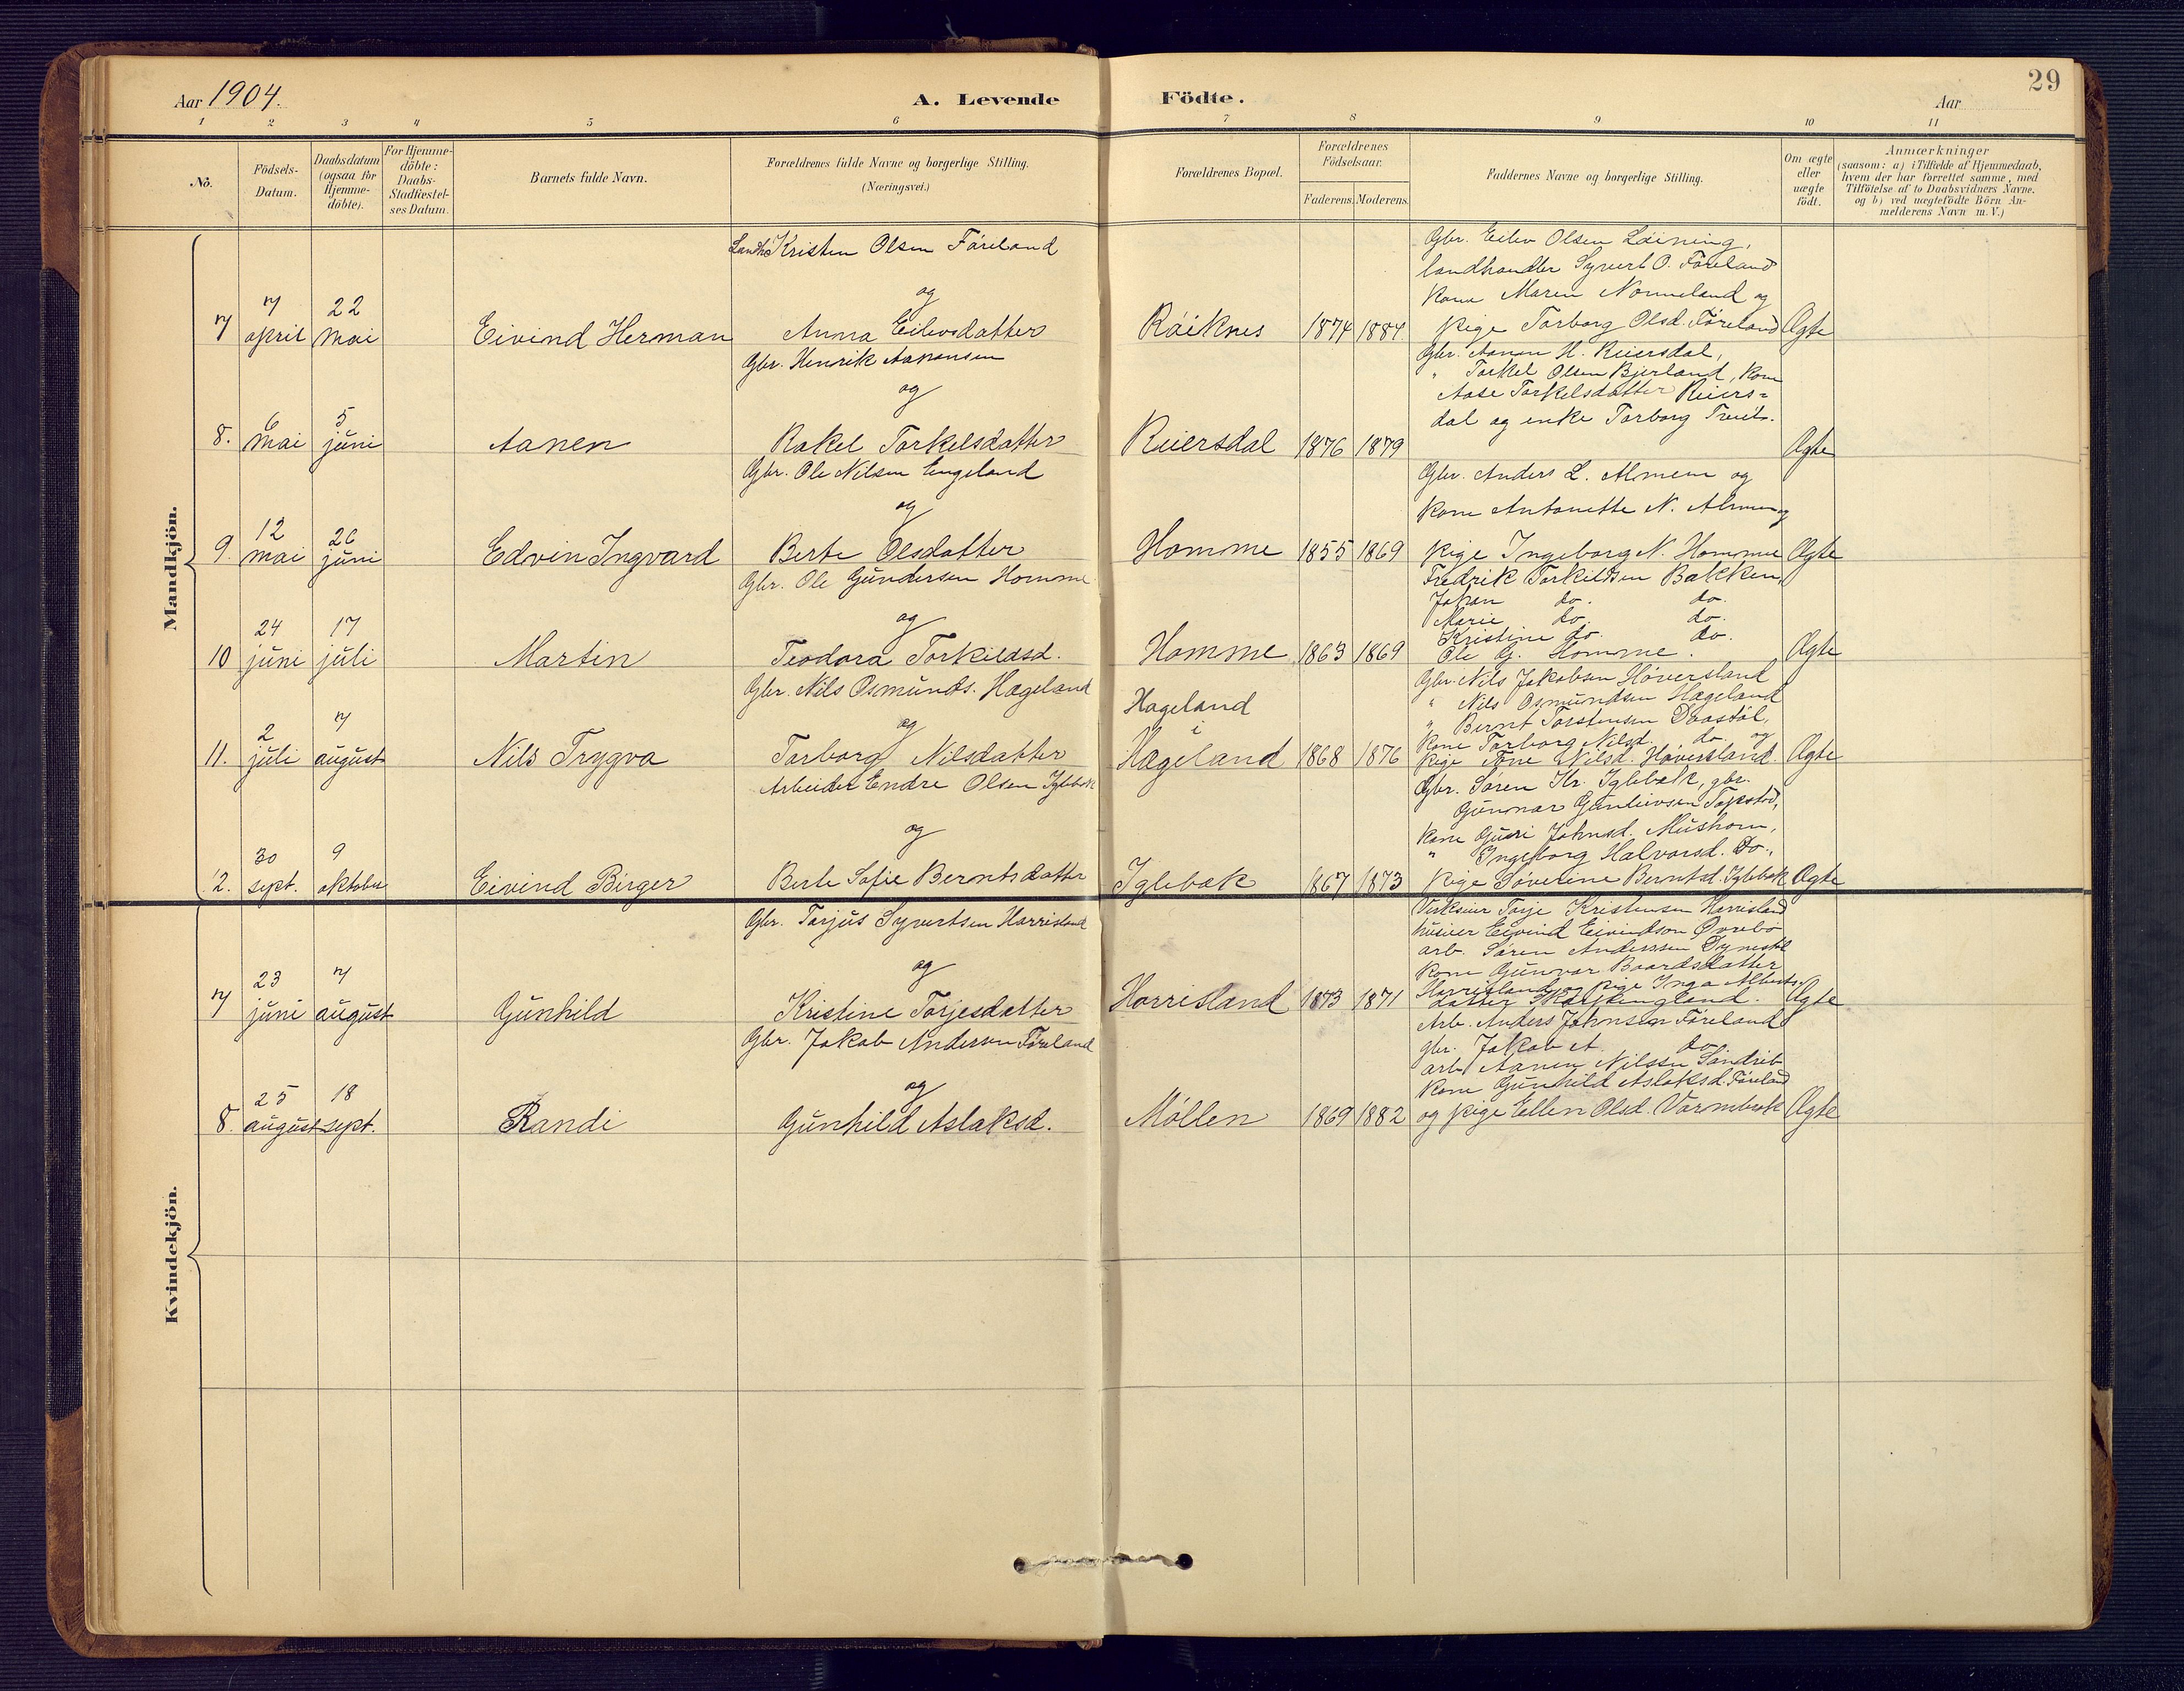 29
Aar 1904.
A. Levende Födte.
Aar
1 2 3 4 5 6 7 8 9 10 11
No.
Födsels-Datum.
Daabsdatum (ogsaa for Hjemme-döbte).
For Hjemme-döbte: Daabs-Stadfæstel-ses Datum.
Barnets fulde Navn.
Forældrenes fulde Navne og borgerlige Stilling.
(Næringsvei.)
Forældrenes Bopæl.
Forældrenes Födselsaar.
Faderens. Moderens.
Faddernes Navne og borgerlige Stilling.
Om ægte eller uægte födt.
Anmærkninger
(saasom: a) i Tilfælde af Hjemmedaab, hvem der har forrettet samme, med Tilföielse af to Daabsvidners Navne. og b) ved uægtefödte Börn An-melderens Navn m. V.)
Mandkjön.
Landh. Kristen Olsen Föreland
og
7 7 april 22 mai Eivind Herman Anna Eilevsdatter Röiknes 1874 1884 Ægte
Gbr. Eilev Olsen Löining,
landhandler Syvert O. Föreland
kone Maren Nonneland og
pige Torborg Olsd. Föreland
Gbr. Henrik Aanonsen
og
8. 6 mai 5 juni Aanen Rakel Torkelsdatter Reiersdal 1876 1879 Ægte
Gbr. Aanon H. Reiersdal,
" Torkel Olsen Bjerland, kone
Aase Torkelsdatter Reiers=
dal og enke Torborg
Gbr. Ole Nilsen Engeland
og
9. 12 mai 26 juni Edvin Ingvard Berte Olsdatter Homme 1855 1869 Ægte
Gbr. Anders L. Almem og
kone Antonette N. Almen og
pige Ingeborg N. Homme
Gbr. Ole Gundersen Homme
og
10 24 juni 17 juli Martin Teodora Torkildsd. Homme 1863 1869 Ægte
Fredrik Torkildsen Bakken
Johan do. do.
Marie do. do.
Kristine do. do.
Ole G. Homme.
Gbr. Nils Osmunds. Hægeland
og
11. 2 juli 7 august Nils Trygva Torborg Nilsdatter Hageland i Hægeland 1868 1876 Ægte
Gbr. Nils Jakobsen Höversland
" Nils Osmundsen Hægeland
" Bernt Torstensen Daastöl,
kone Torborg Nilsd. do. og
pige Tone Nilsd. Höversland.
Arbeider Endre Olsen Iglebæk
og
12. 30 sept. 9 oktober Eivind Birger Berte Sofie Berntsdatter Iglebæk 1867 1873 Ægte
Gbr. Sören Kr. Iglebæk, gbr.
Gunnar Gunleivsen
kone Guri Johnsd. Mushom,
" Ingeborg Halvorsd. Do.,
pige Söverine Berntsd. Iglebæk
Kvindekjön.
Gbr. Torjus Syvertsen Harrisland
og
7 23 juni 7 august Gunhild Kristine Torjesdatter Horrisland 1873 1871 Ægte
Torje Kristensen Horrisland
huseier Eivind Eivindson Övrebö
arb. Sören Anderssen
kone Gunvor Baardsdatter
Horrisland og pige Inga Alberts-
datter
Gbr. Jakob Andersen Föreland
og
8. 25 august 18 sept. Randi Gunhild Aslaksd. Möllen 1869 1882 Ægte
Arb. Anders Johnsen Föreland
gbr. Jakob A. do.
arb. Aanen Nilssen
kone Gunhild Aslaksd. Föreland
og pige Ellen Olsd. Varmbæk